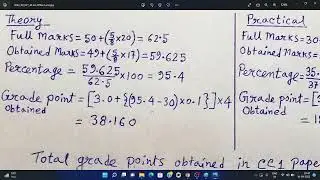 Theory
Practical
Full Marks = 50+(5/8×20) = 62.5
Full Marks = 30
Obtained Marks = 49+(5/8×17) = 59.625
Obtained Mar
Percentage = 59.625/62.5 ×100 = 95.4
Percentage = 35.
37
Grade point Obtained = [3.0+{(95.4-30)×0.1}]×4
Grade poin Obtained
= 38.160
= 18
Total grade points obtained in CC1 Pape